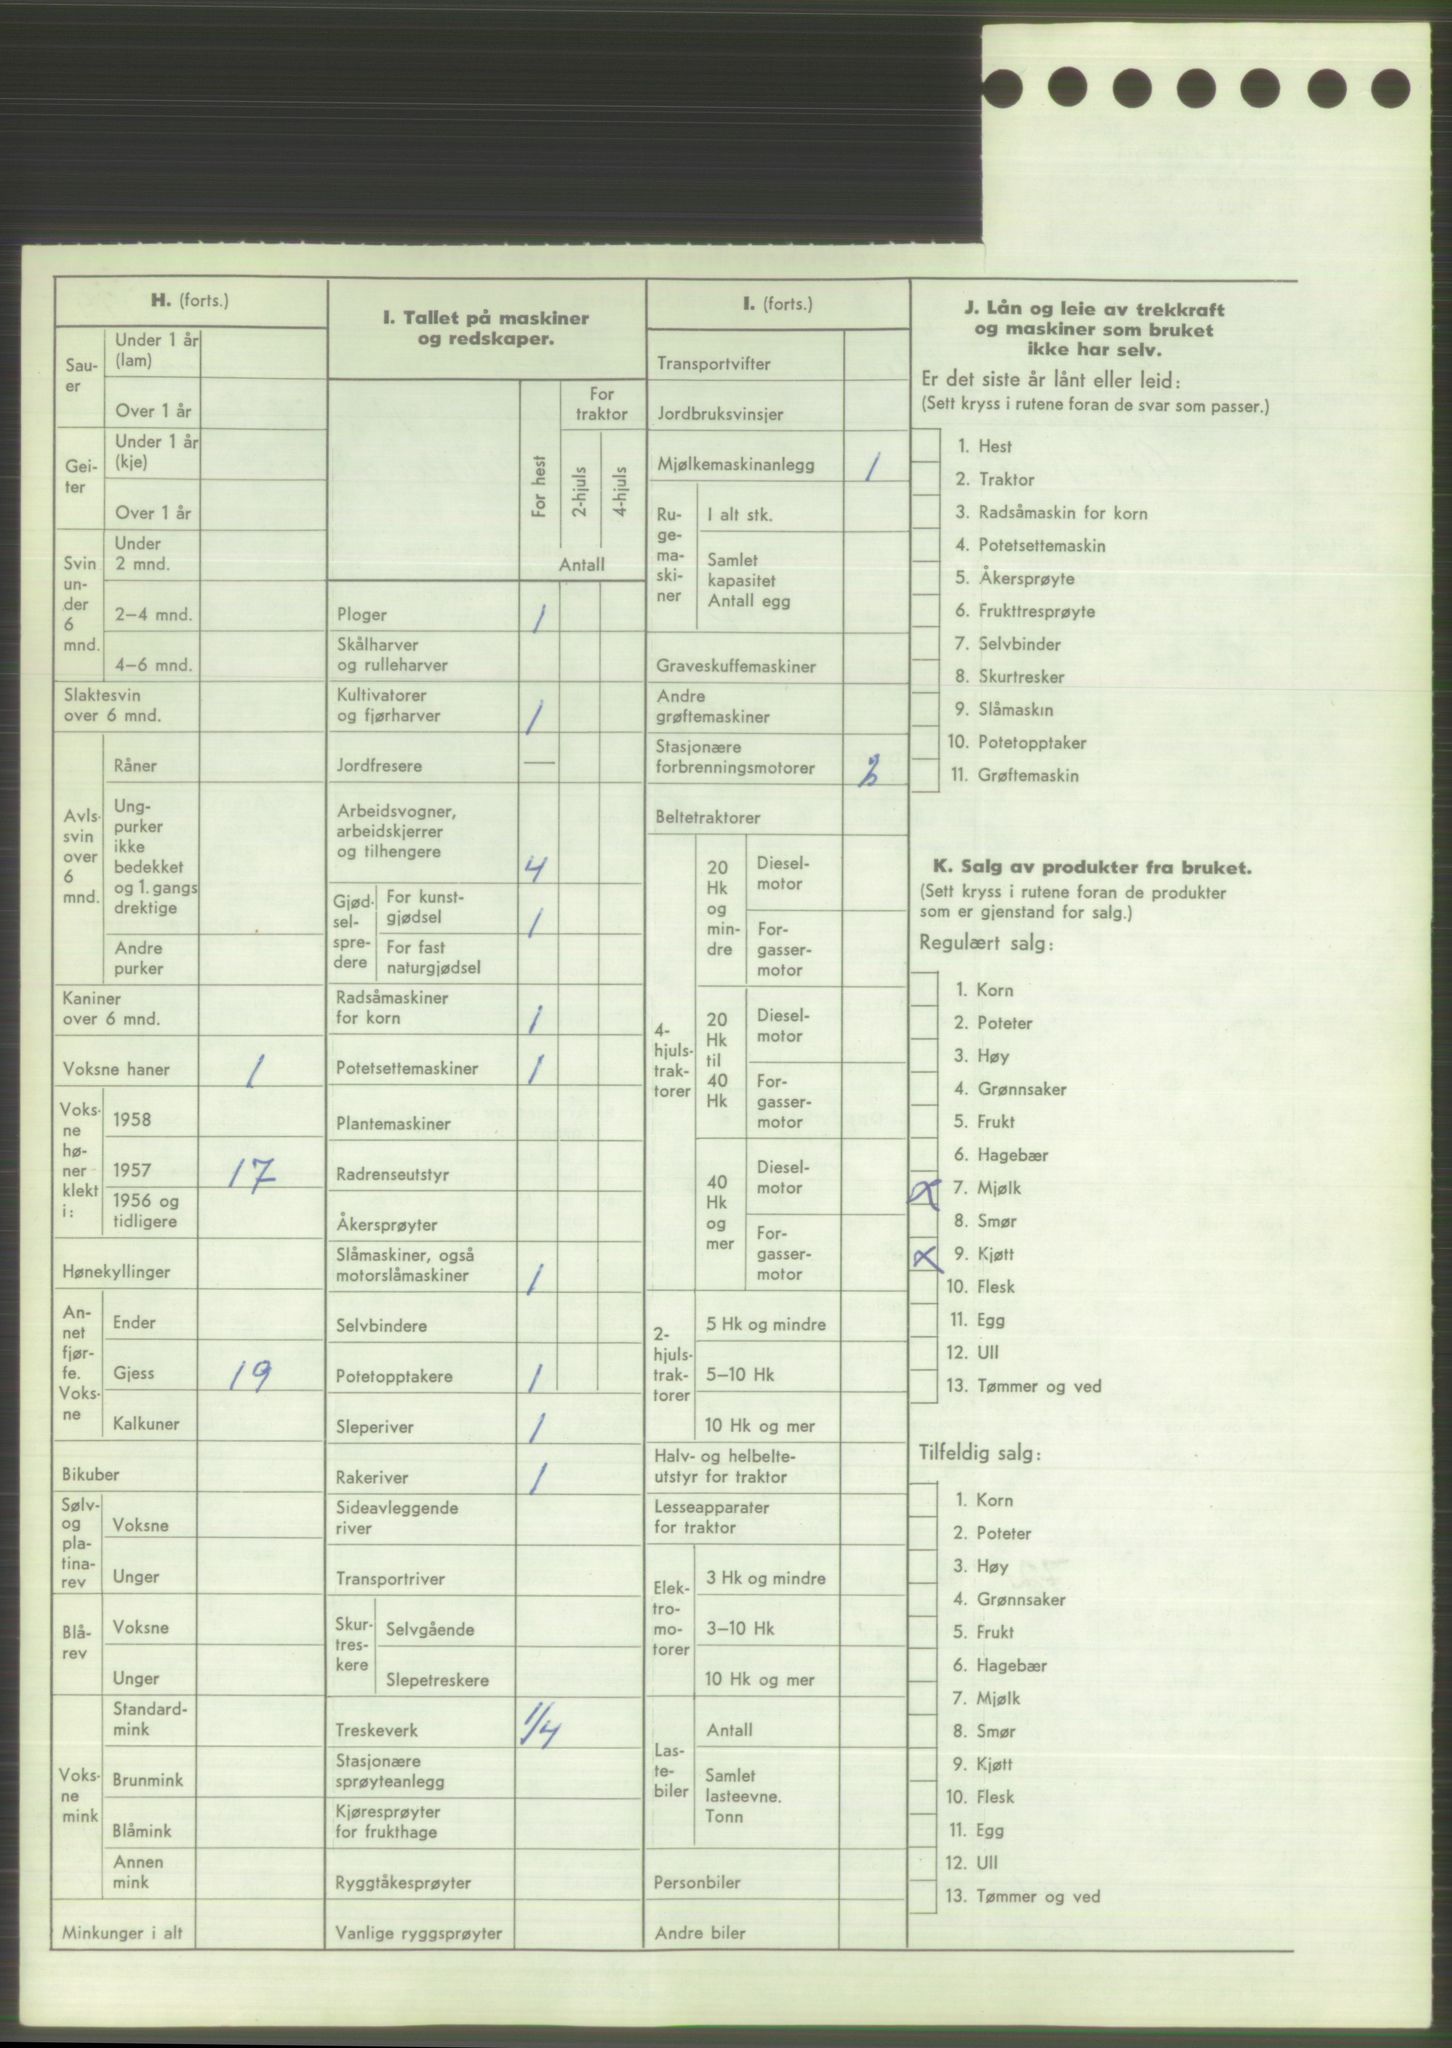 H. (forts.)
Sau-
er
Under 1 år
(lam)
Over 1 år
Gei-
ter
Under 1 år
(kje)
Over 1 år
Svin
un-
der
6
mnd.
Under
2 mnd.
2–4 mnd.
4–6 mnd.
Slaktesvin
over 6 mnd.
Avls-
svin
over
6
mnd.
Råner
Ung-
purker
ikke
bedekket
og 1. gangs
drektige
Andre
purker
Kaniner
over 6 mnd.
Voksne haner 1
Voks-
ne
hø-
ner
klekt
i:
1958
1957 17
1956 og
tidligere
Hønekyllinger
An-
net
fjør-
fe.
Voks-
ne
Ender
Gjess 19
Kalkuner
Bikuber
Sølv-
og
pla-
tina-
rev
Voksne
Unger
Blå-
rev
Voksne
Unger
Voks-
ne
mink
Standard-
mink
Brunmink
Blåmink
Annen
mink
Minkunger i alt
I. Tallet på maskiner
og redskaper.
For hest
For
traktor
2-hjuls
4-hjuls
Antall
Ploger 1
Skålharver
og rulleharver
Kultivatorer
og fjørharver 1
Jordfresere —
Arbeidsvogner,
arbeidskjerrer
og tilhengere 4
Gjød-
sel-
spre-
dere
For kunst-
gjødsel 1
For fast
naturgjødsel
Radsåmaskiner
for korn 1
Potetsettemaskiner 1
Plantemaskiner
Radrenseutstyr
Åkersprøyter
Slåmaskiner, også
motorslåmaskiner 1
Selvbindere
Potetopptakere 1
Sleperiver 1
Rakeriver 1
Sideavleggende
river
Transportriver
Skur-
tres-
kere
Selvgående
Slepetreskere
Treskeverk 1/4
Stasjonære
sprøyteanlegg
Kjøresprøyter
for frukthage
Ryggtåkesprøyter
Vanlige ryggsprøyter
I. (forts.)
Transportvifter
Jordbruksvinsjer
Mjølkemaskinanlegg 1
Ru-
ge-
ma-
ski-
ner
I alt stk.
Samlet
kapasitet
Antall egg
Graveskuffemaskiner
Andre
grøftemaskiner
Stasjonære
forbrenningsmotorer
Beltetraktorer
4-
hjuls-
trak-
torer
20
Hk
og
min-
dre
Diesel-
motor
For-
gasser-
motor
20
Hk
til
40
Hk
Diesel-
motor
For-
gasser-
motor
40
Hk
og
mer
Diesel-
motor
For-
gasser-
motor
2-
hjuls-
trak-
torer
5 Hk og mindre
5–10 Hk
10 Hk og mer
Halv- og helbelte-
utstyr for traktor
Lesseapparater
for traktor
Elek-
tro-
mo-
torer
3 Hk og mindre
3–10 Hk
10 Hk og mer
Las-
te-
biler
Antall
Samlet
lasteevne.
Tonn
Personbiler
Andre biler
J. Lån og leie av trekkraft
og maskiner som bruket
ikke har selv.
Er det siste år lånt eller leid:
(Sett kryss i rutene foran de svar som passer.)
1. Hest
2. Traktor
3. Radsåmaskin for korn
4. Potetsettemaskin
5. Åkersprøyte
6. Frukttresprøyte
7. Selvbinder
8. Skurtresker
9. Slåmaskin
10. Potetopptaker
11. Grøftemaskin
K. Salg av produkter fra bruket.
(Sett kryss i rutene foran de produkter
som er gjenstand for salg.)
Regulært salg:
1. Korn
2. Poteter
3. Høy
4. Grønnsaker
5. Frukt
6. Hagebær
x 7. Mjølk
8. Smør
x 9. Kjøtt
10. Flesk
11. Egg
12. Ull
13. Tømmer og ved
Tilfeldig salg:
1. Korn
2. Poteter
3. Høy
4. Grønnsaker
5. Frukt
6. Hagebær
7. Mjølk
8. Smør
9. Kjøtt
10. Flesk
11. Egg
12. Ull
13. Tømmer og ved